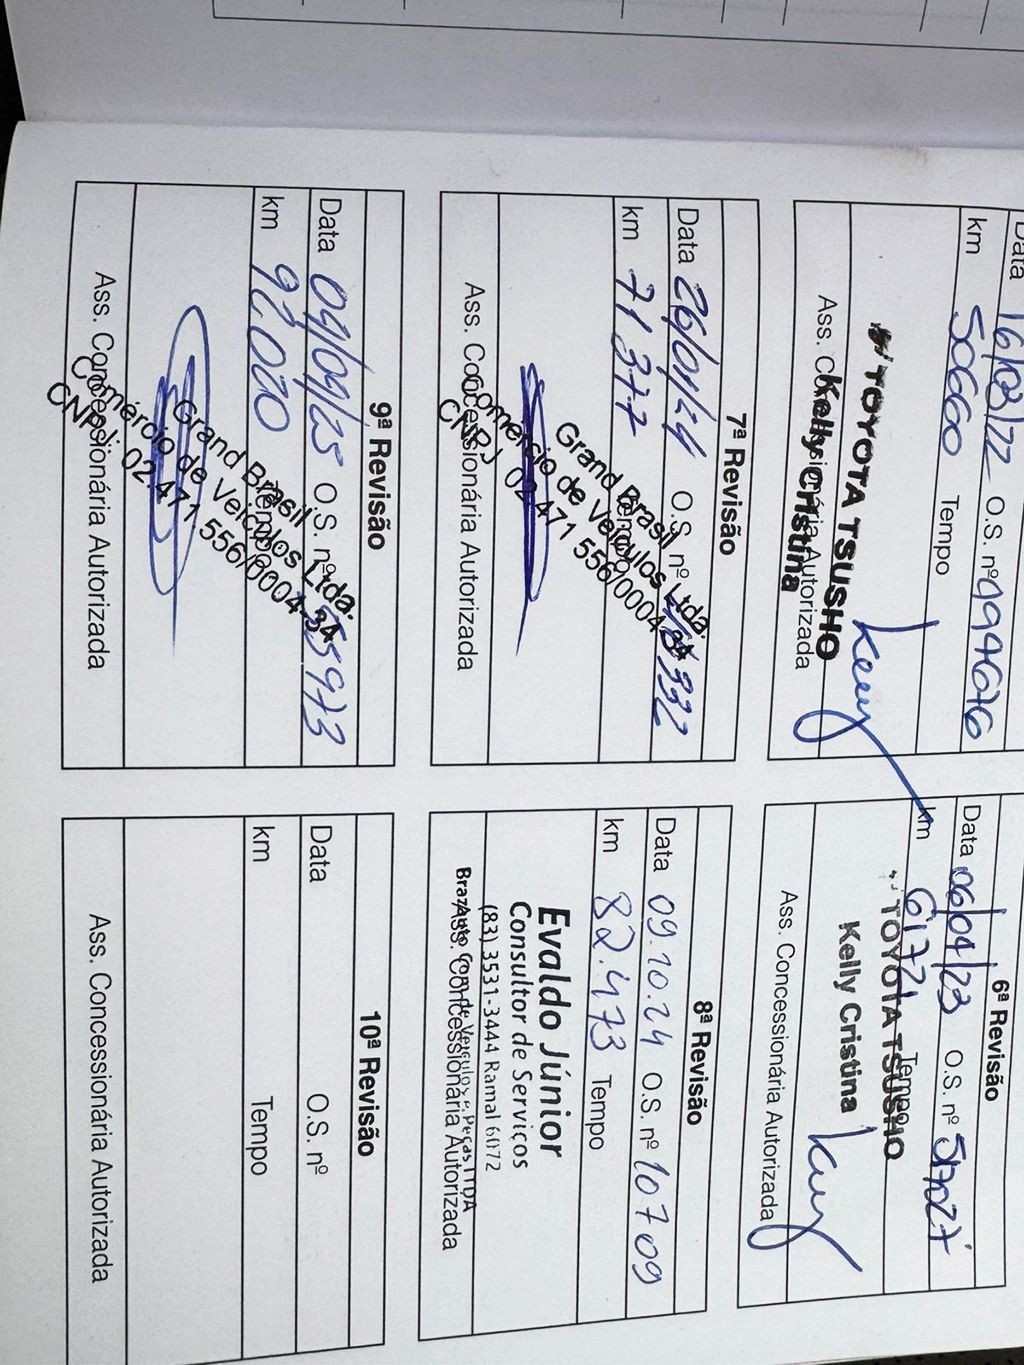 Data 16/08/22 O.S. nº
km 50660 Tempo
TOYOTA TSUSHO
Kelly Cristina
Kelly
Ass. Concessionária Autorizada
6ª Revisão
Data 06/04/23 O.S. nº 517027
km 61721 Tempo
TOYOTA TSUSHO
Kelly Cristina
Kelly
Ass. Concessionária Autorizada
7ª Revisão
Data 26/01/24 O.S. nº
km 71377 Tempo
Grand Brasil
Comércio de Veículos Ltda.
CNPJ 02.471 556/0004-34
Ass. Concessionária Autorizada
8ª Revisão
Data 09.10.24 O.S. nº 10709
km 82.473 Tempo
Evaldo Júnior
Consultor de Serviços
(83) 3531-3444 Ramal 6072
Brazauto Com de Veículos e Peças LTDA
Ass. Concessionária Autorizada
9ª Revisão
Data 09/09/25 O.S. nº 55973
km 92.020 Tempo
Grand Brasil
Comércio de Veículos Ltda.
CNPJ 02.471 556/0004-34
Ass. Concessionária Autorizada
10ª Revisão
Data O.S. nº
km Tempo
Ass. Concessionária Autorizada